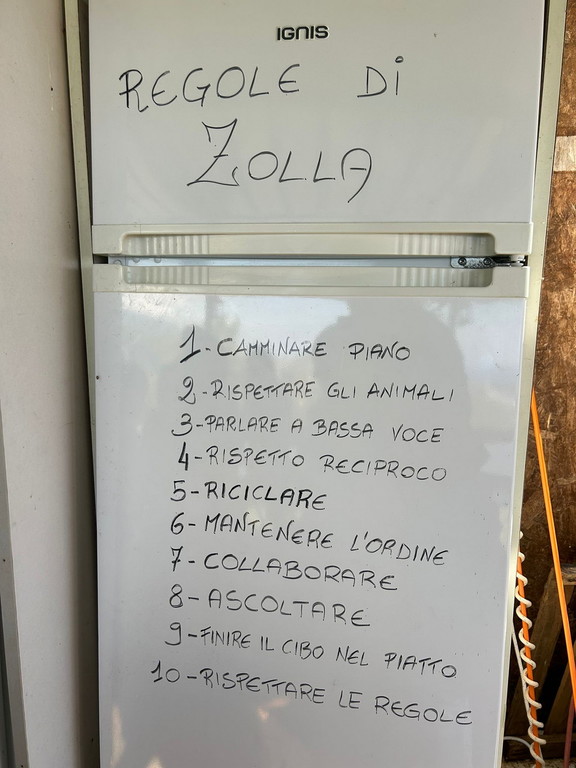 IGNIS
REGOLE DI
ZOLLA
1-CAMMINARE PIANO
2-RISPETTARE GLI ANIMALI
3-PARLARE A BASSA VOCE
4-RISPETTO RECIPROCO
5-RICICLARE
6-MANTENERE L'ORDINE
7-COLLABORARE
8-ASCOLTARE
9-FINIRE IL CIBO NEL PIATTO
10-RISPETTARE LE REGOLE